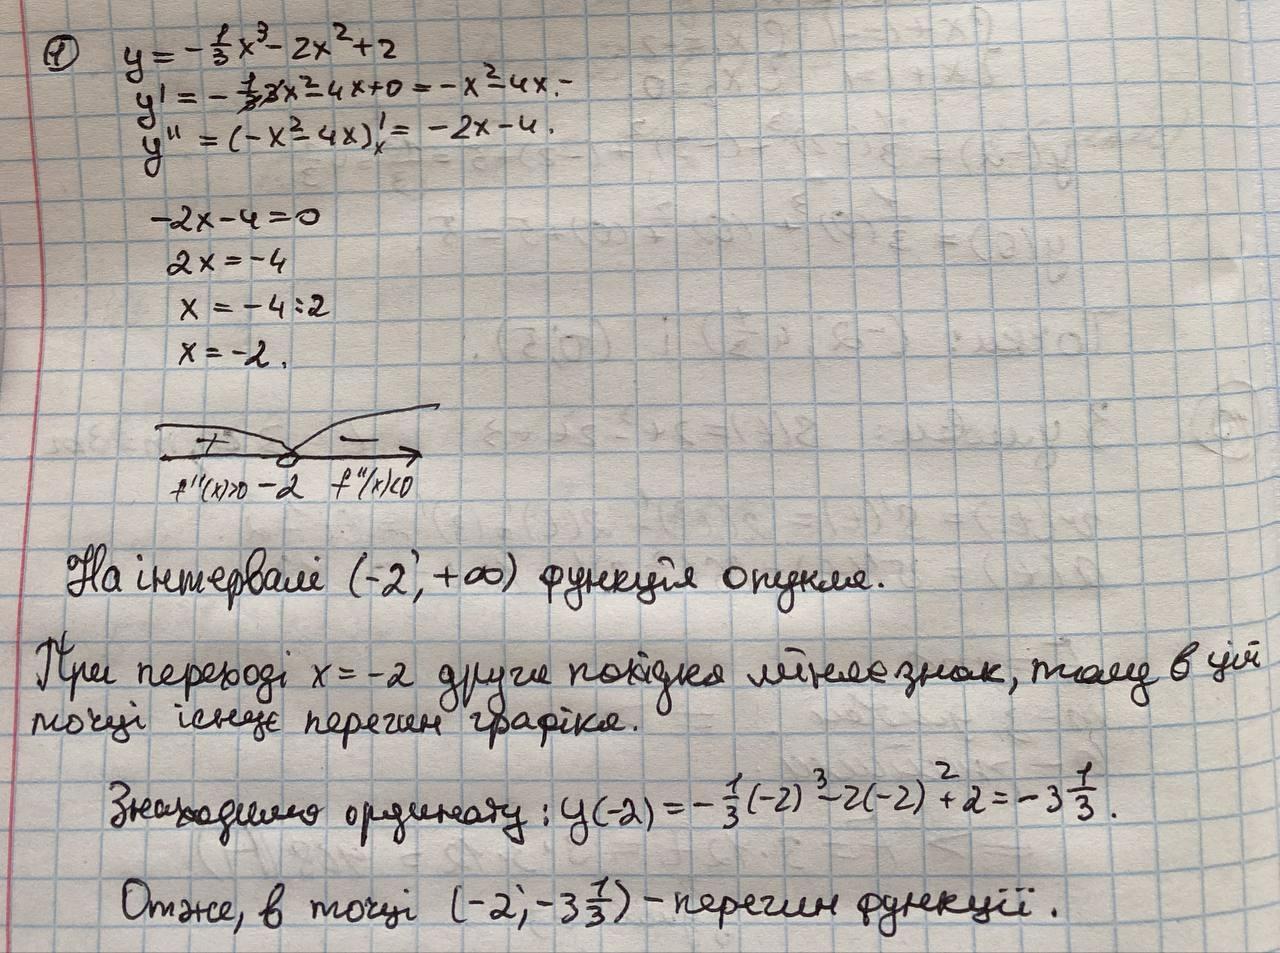 ① y = -1/3 x³ - 2x² + 2
y' = - 1/3 3x² - 4x + 0 = -x² - 4x.-
y'' = (-x² - 4x)'ₓ = -2x - 4.
-2x - 4 = 0
2x = -4
x = -4 : 2
x = -2.
+ −
f''(x)>0 -2 f''(x)<0
На інтервалі (-2; +∞) функція опукла.
При переході x = -2 друга похідна міняє знак, тому в цій
точці існує перегин графіка.
Знаходимо ординату: y(-2) = - 1/3 (-2)³ - 2(-2)² + 2 = -3 1/3.
Отже, в точці (-2; -3 1/3) - перегин функції.